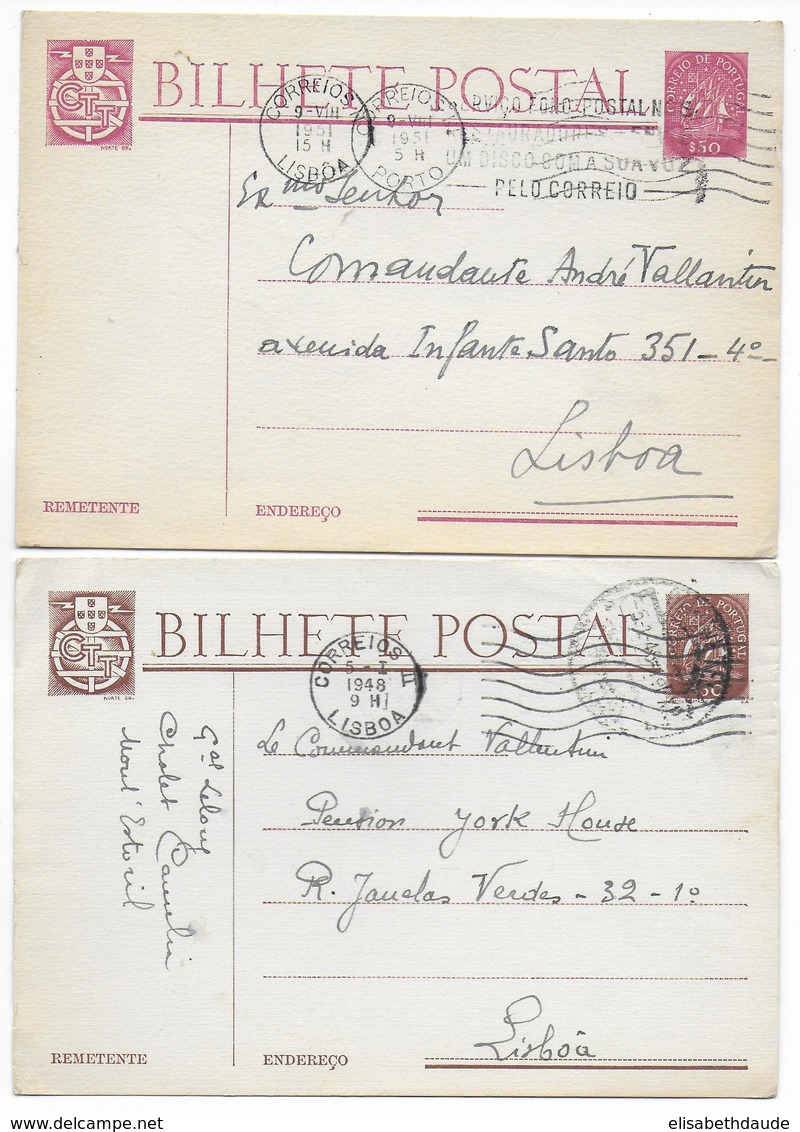 CTT
NORTE GR.
BILHETE POSTAL
CORREIO DE PORTUGAL
$50
CORREIOS
9-VIII
1951
15 H
LISBÔA
CORREIOS
9-VIII
1951
5 H
PORTO
FONO-POSTAL
GRAVADORES
UM DISCO COM A SUA VOZ
PELO CORREIO
Ex mo Senhor
Comandante André Vallantin
avenida Infante Santo 351-4º-
Lisboa
REMETENTE
ENDEREÇO
CTT
NORTE GR.
BILHETE POSTAL
CORREIO DE PORTUGAL
50
CORREIOS II
5-I
1948
9 H
LISBOA
Le Commandant Vallentin
Pension York House
R. Janelas Verdes - 32 - 1º
Lisbôa
Gal Lelong
Chalet Camelia
Mont' Estoril
REMETENTE
ENDEREÇO
elisabethdaude